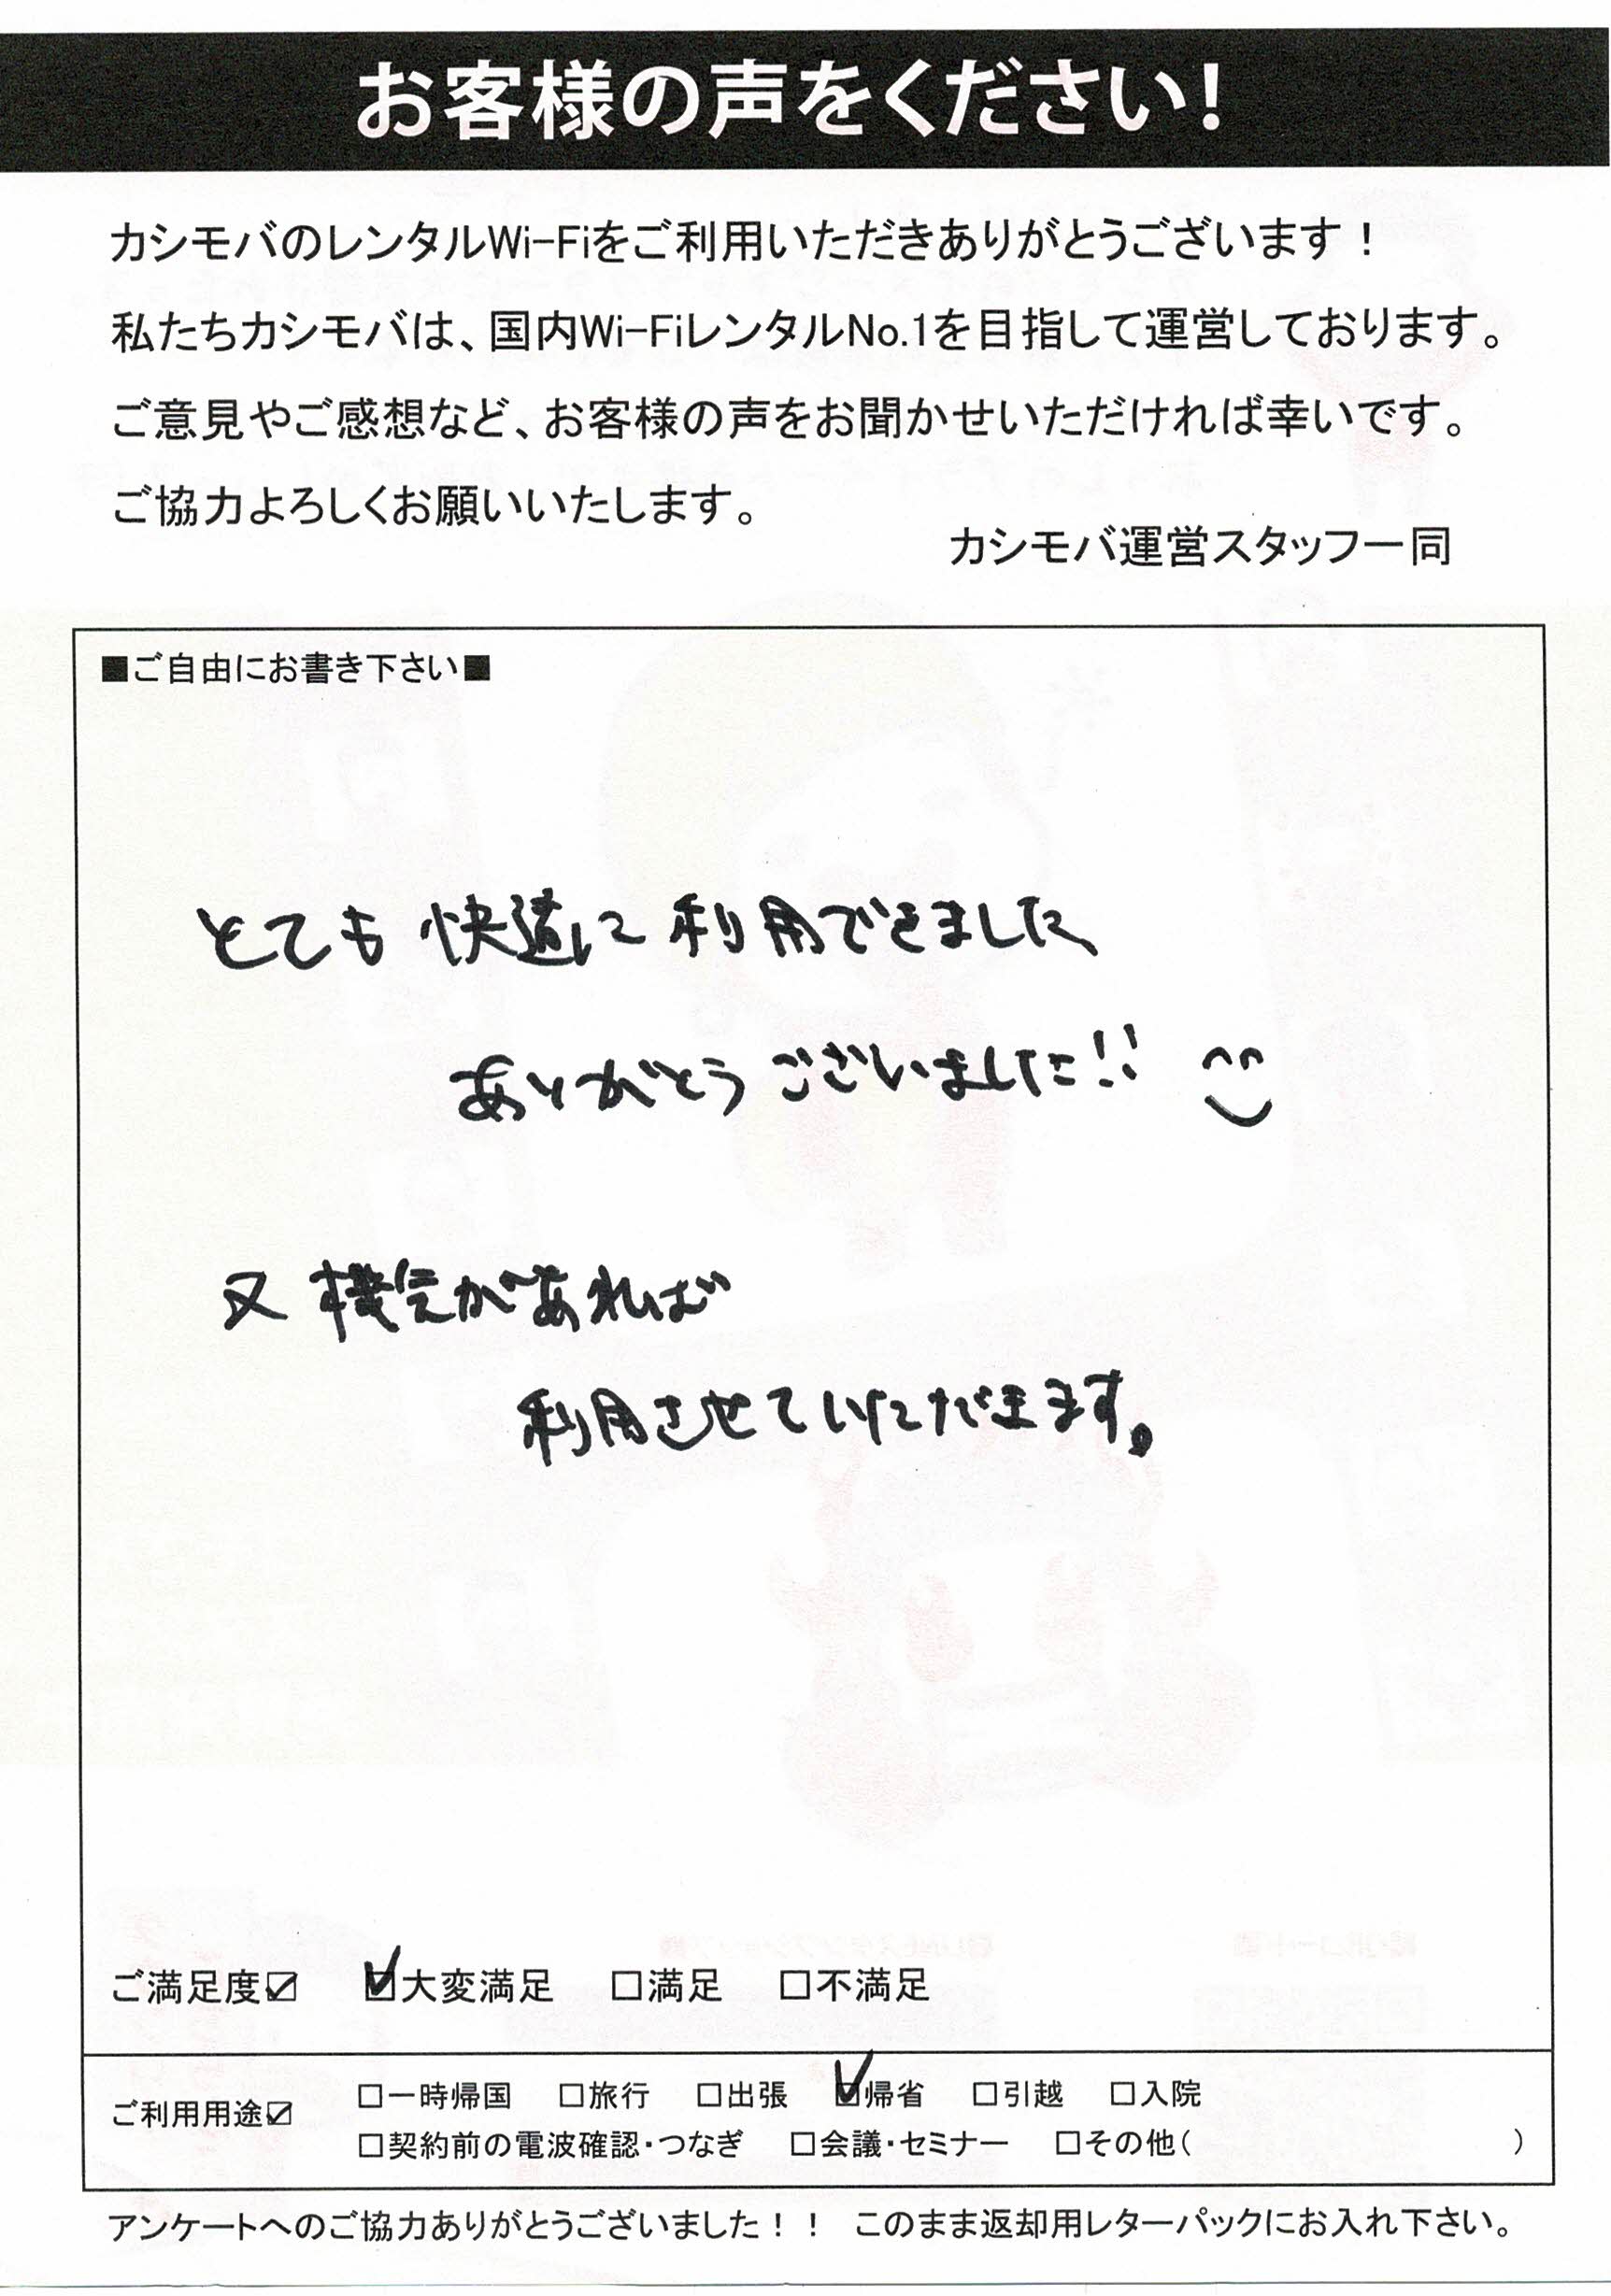 お客様の声をください!
カシモバのレンタルWi-Fiをご利用いただきありがとうございます！
私たちカシモバは、国内Wi-FiレンタルNo.1を目指して運営しております。
ご意見やご感想など、お客様の声をお聞かせいただければ幸いです。
ご協力よろしくお願いいたします。
カシモバ運営スタッフ一同
■ご自由にお書き下さい■
とても快適に利用できました、
ありがとうございました!!
又機会があれば
利用させていただきます。
ご満足度☑ ☑大変満足 □満足 □不満足
ご利用用途☑ □一時帰国 □旅行 □出張 ☑帰省 □引越 □入院
□契約前の電波確認・つなぎ □会議・セミナー □その他( )
アンケートへのご協力ありがとうございました！！ このまま返却用レターパックにお入れ下さい。